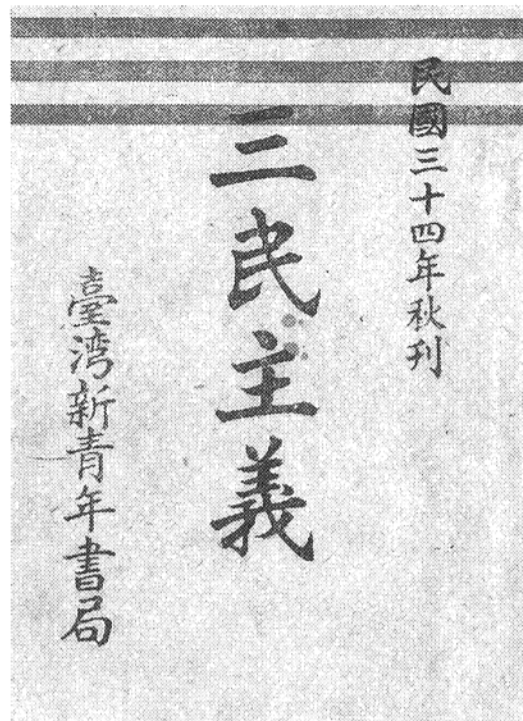 民國三十四年秋刊
三民主義
臺湾新青年書局